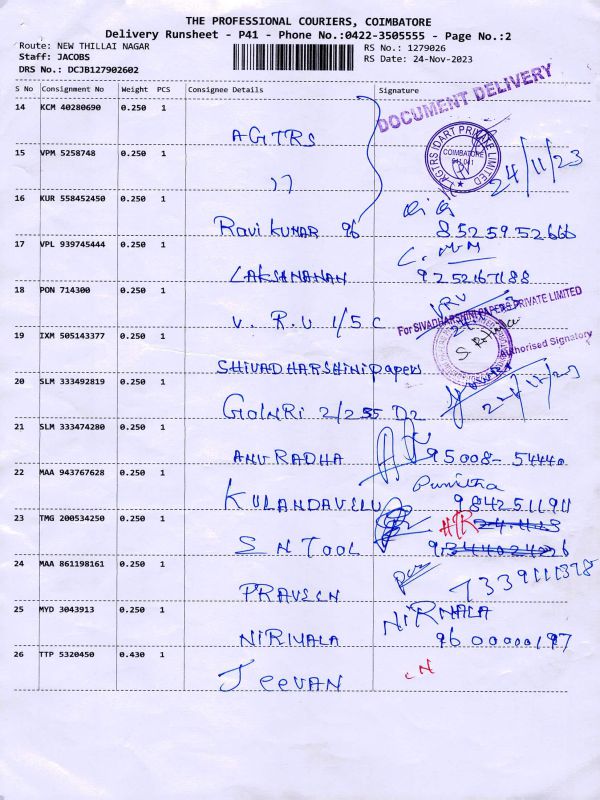 THE PROFESSIONAL COURIERS, COIMBATORE
Delivery Runsheet - P41 - Phone No.:0422-3505555 - Page No.:2
Route: NEW THILLAI NAGAR
RS No.: 1279026
Staff: JACOBS
RS Date: 24-Nov-2023
DRS No.: DCJB127902602
S No Consignment No Weight PCS Consignee Details Signature
DOCUMENT DELIVERY
14 KCM 40280690 0.250 1
AGTRS
AGTRS IDART PRIVATE LIMITED
COIMBATORE
641 041
24/11/23
15 VPM 5258748 0.250 1
"
16 KUR 558452450 0.250 1
Ravi KUMAR 96
8525952666
17 VPL 939745444 0.250 1
LAKSHMANAN
9252167188
18 PON 714300 0.250 1
V. R. U 1/5 C
VRV
For SIVADHARSHINI PAPERS PRIVATE LIMITED
Authorised Signatory
19 IXM 505143377 0.250 1
SHIVADHARSHINI papers
20 SLM 333492819 0.250 1
21 SLM 333474280 0.250 1
ANURADHA
95008-54440
22 MAA 943767628 0.250 1
KULANDAVELU
Punitha
9842511911
23 TMG 200534250 0.250 1
S N TOOL
24 MAA 861198161 0.250 1
PRAVEEN
25 MYD 3043913 0.250 1
NIRMALA
NIRMALA
9600000197
26 TTP 5320450 0.430 1
JEEVAN